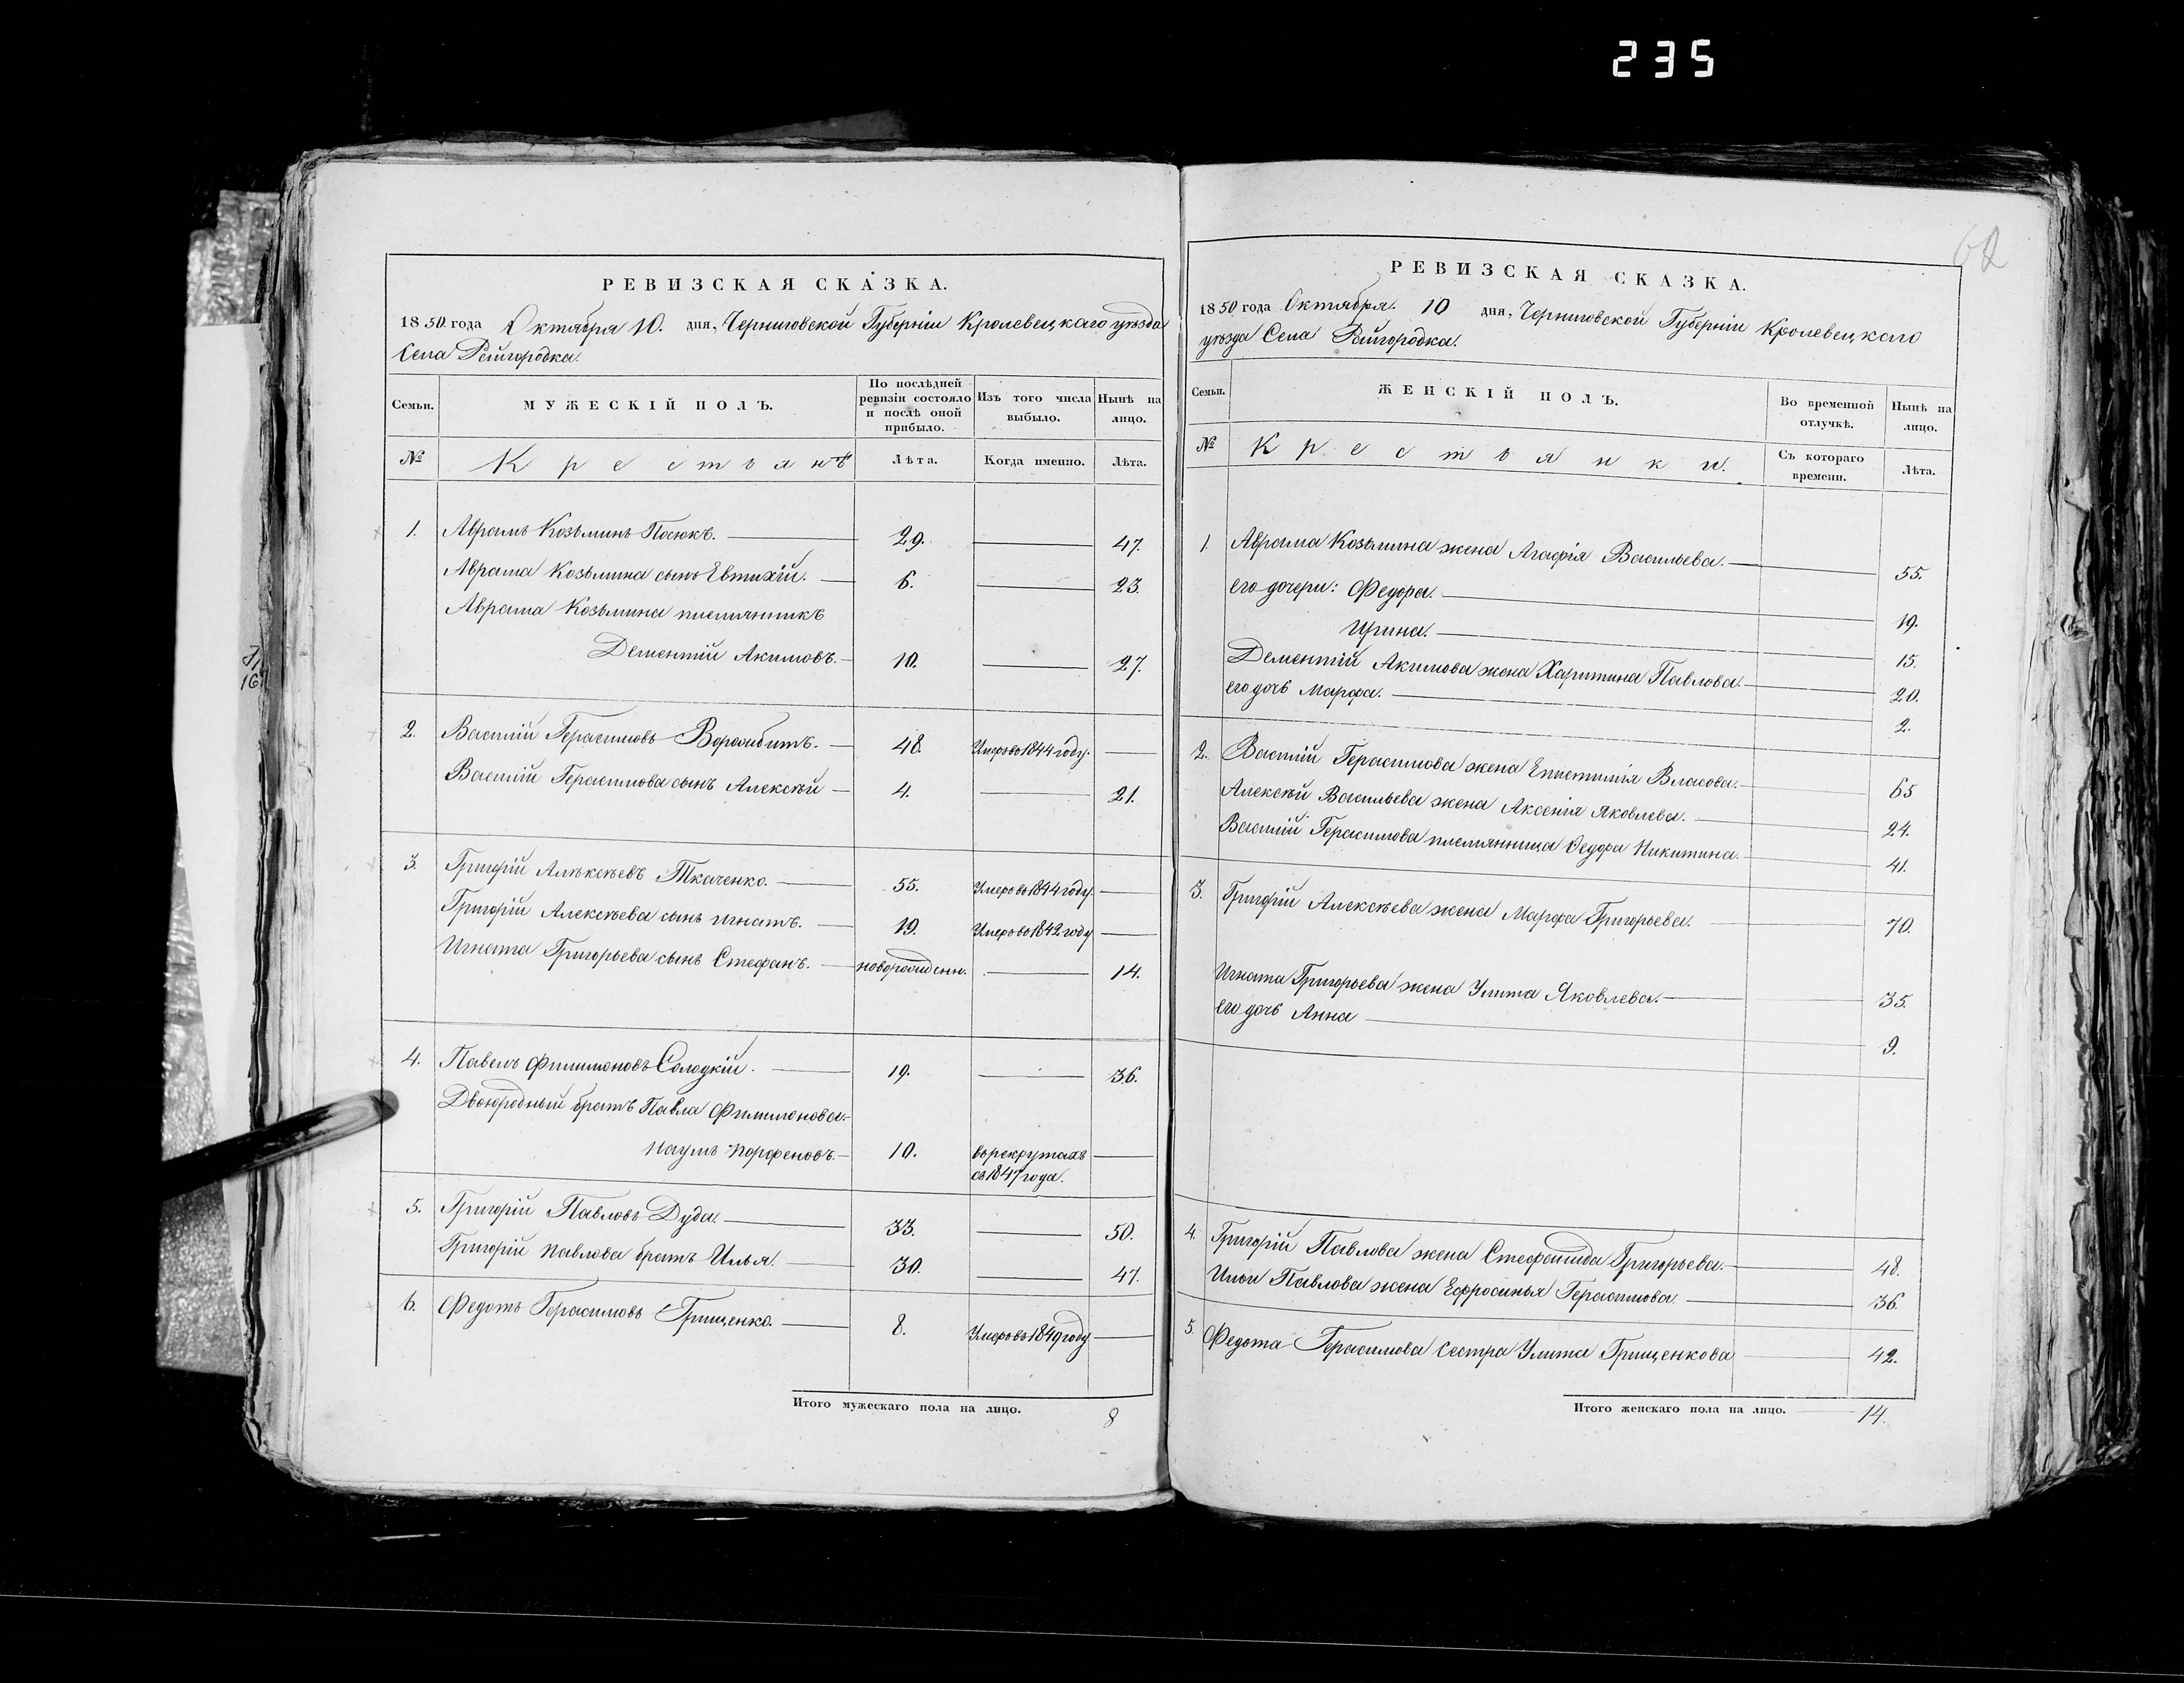 235
62
РЕВИЗСКАЯ СКАЗКА.
1850 года Октября 10. дня, Черниговской Губерніи Кролевецкаго уѣзда
Села Райгородка.
Семьи.
МУЖЕСКІЙ ПОЛЪ.
По послѣдней ревизіи состояло и послѣ оной прибыло.
Изъ того числа выбыло.
Нынѣ на лицо.
№
Крестьянъ
Лѣта.
Когда именно.
Лѣта.
1. Аврамъ Козьминъ Пасюкъ. 29. 47.
Аврама Козьмина сынъ Евтихій. 6. 23.
Аврама Козьмина племянникъ
Дементій Акимовъ. 10. 27.
2. Василій Герасимовъ Ворожбитъ. 48. Умеръ въ 1844 году.
Василій Герасимова сынъ Алексѣй 4. 21.
3. Григорій Алѣксѣевъ Ткаченко. 55. Умеръ въ 1844 году.
Григорій Алексѣева сынъ Игнатъ. 19. Умеръ въ 1842 году
Игната Григорьева сынъ Стефанъ. новорожденн. 14.
4. Павелъ Филимоновъ Солодкій. 19. 36.
Двоюродный братъ Павла Филимонова
Наумъ Порфеновъ. 10. въ рекрутахъ
съ 1847 года.
5. Григорій Павловъ Дуда. 33. 50.
Григорій Павлова братъ Илья. 30. 47.
6. Федотъ Герасимовъ Грищенко. 8. Умеръ въ 1849 году
Итого мужескаго пола на лицо. 8
РЕВИЗСКАЯ СКАЗКА.
1850 года Октября. 10 дня, Черниговской Губерніи Кролевецкаго
уѣзда Села Райгородка.
Семьи.
ЖЕНСКІЙ ПОЛЪ.
Во временной отлучкѣ.
Нынѣ на лицо.
№
Крестьянки.
Съ котораго времени.
Лѣта.
1. Аврама Козьмина жена Агафія Васильева. 55.
его дочери: Федора. 19.
Ирина. 15.
Дементій Акимова жена Харитина Павлова. 20.
его дочь Марфа. 2.
2. Василій Герасимова жена Епистимія Власова. 65
Алексѣй Васильева жена Аксенія Яковлева. 24.
Василій Герасимова племянница Федора Никитина. 41.
3. Григорій Алексѣева жена Марфа Григорьева. 70.
Игната Григорьева жена Улита Яковлева. 35.
его дочь Анна 9.
4. Григорій Павлова жена Стефанида Григорьева. 48.
Ильи Павлова жена Ефросинья Герасимова. 36.
5. Федота Герасимова сестра Улита Грищенкова 42.
Итого женскаго пола на лицо. 14.